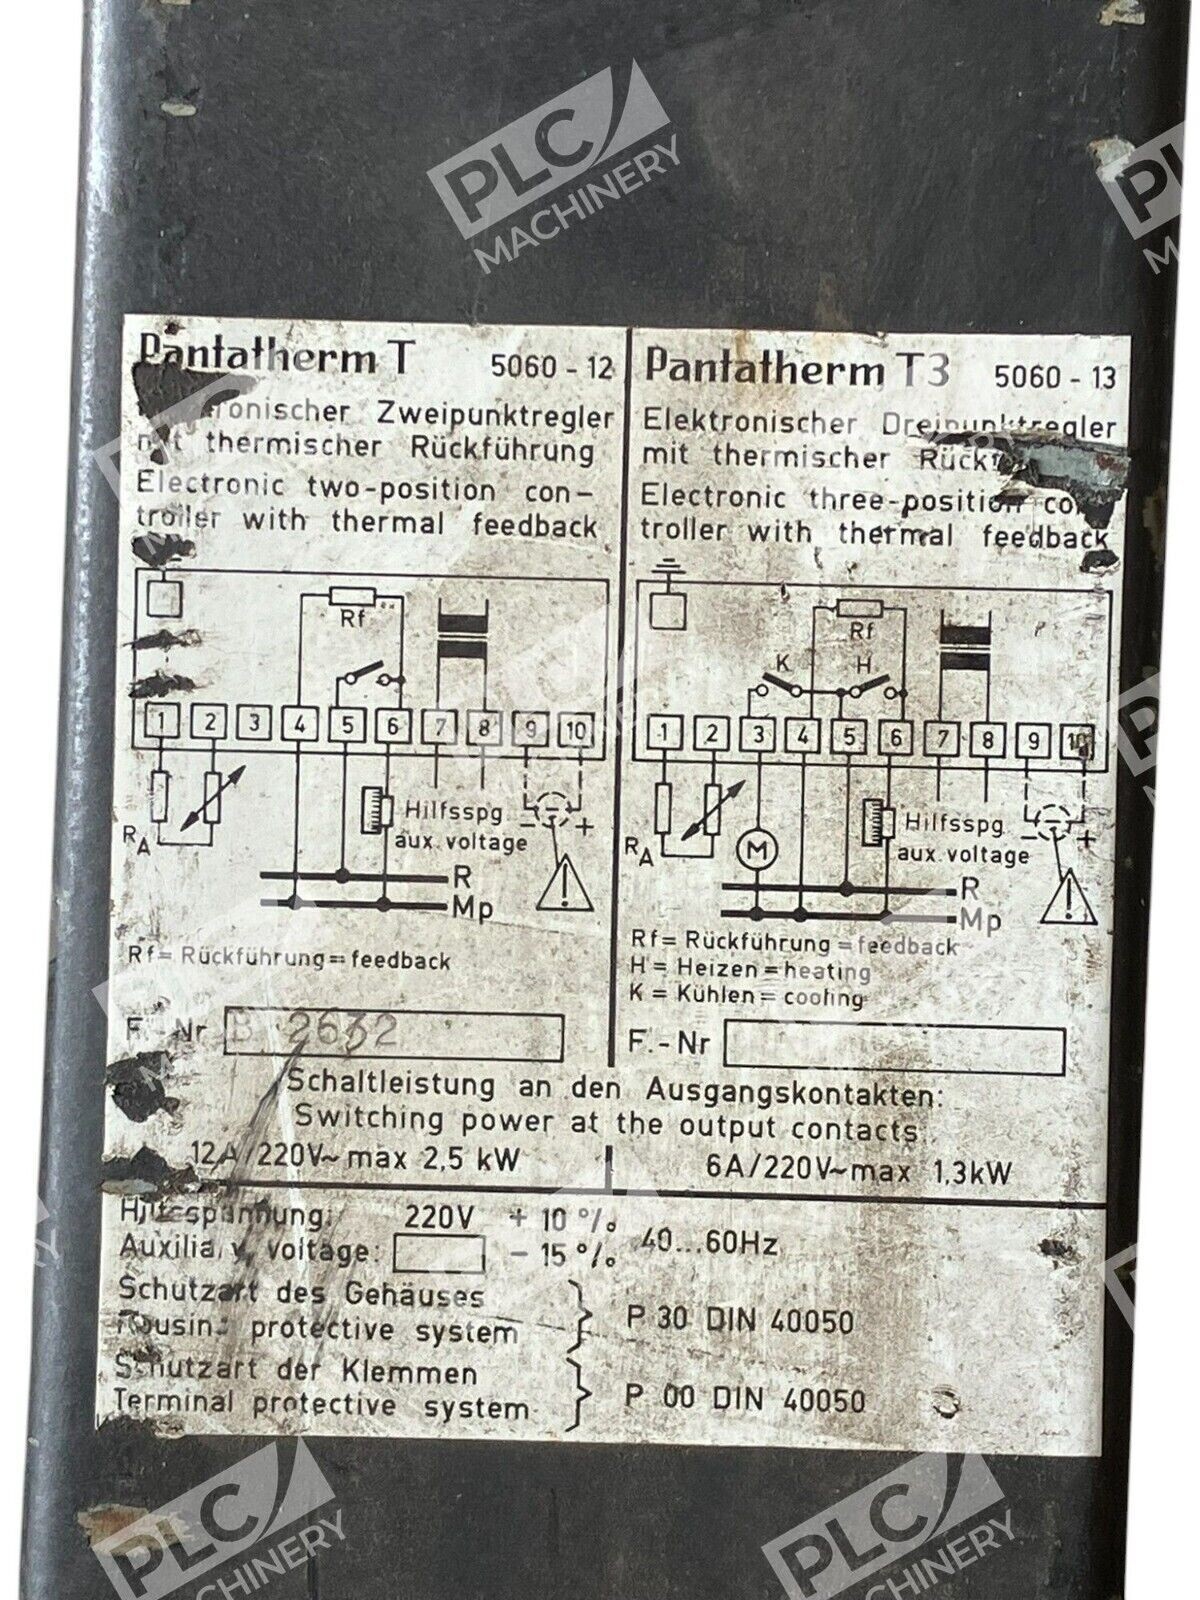 Pantatherm T 5060 - 12
Zweipunktregler
mit thermischer Rückführung
Electronic two-position con-
troller with thermal feedback
Rf
1 2 3 4 5 6 7 8 9 10
RA
Hilfsspg.
aux. voltage
- +
R
Mp
Rf = Rückführung = feedback
F.-Nr B 2632
Pantatherm T3 5060 - 13
Elektronischer Dreipunktregler
mit thermischer
Electronic three-position con-
troller with thermal feedback
Rf
K H
1 2 3 4 5 6 7 8 9 10
RA
M
Hilfsspg.
aux. voltage
- +
R
Mp
Rf = Rückführung = feedback
H = Heizen = heating
K = Kühlen = cooling
F.-Nr
Schaltleistung an den Ausgangskontakten:
Switching power at the output contacts
12A/220V~ max 2,5 kW 6A/220V~ max 1,3kW
Hilfsspannung: 220V + 10 % 40...60Hz
Auxiliary voltage: - 15 %
Schutzart des Gehäuses
Housing protective system P 30 DIN 40050
Schutzart der Klemmen
Terminal protective system P 00 DIN 40050
PLC MACHINERY
PLC MACHINERY
PLC MACHINERY